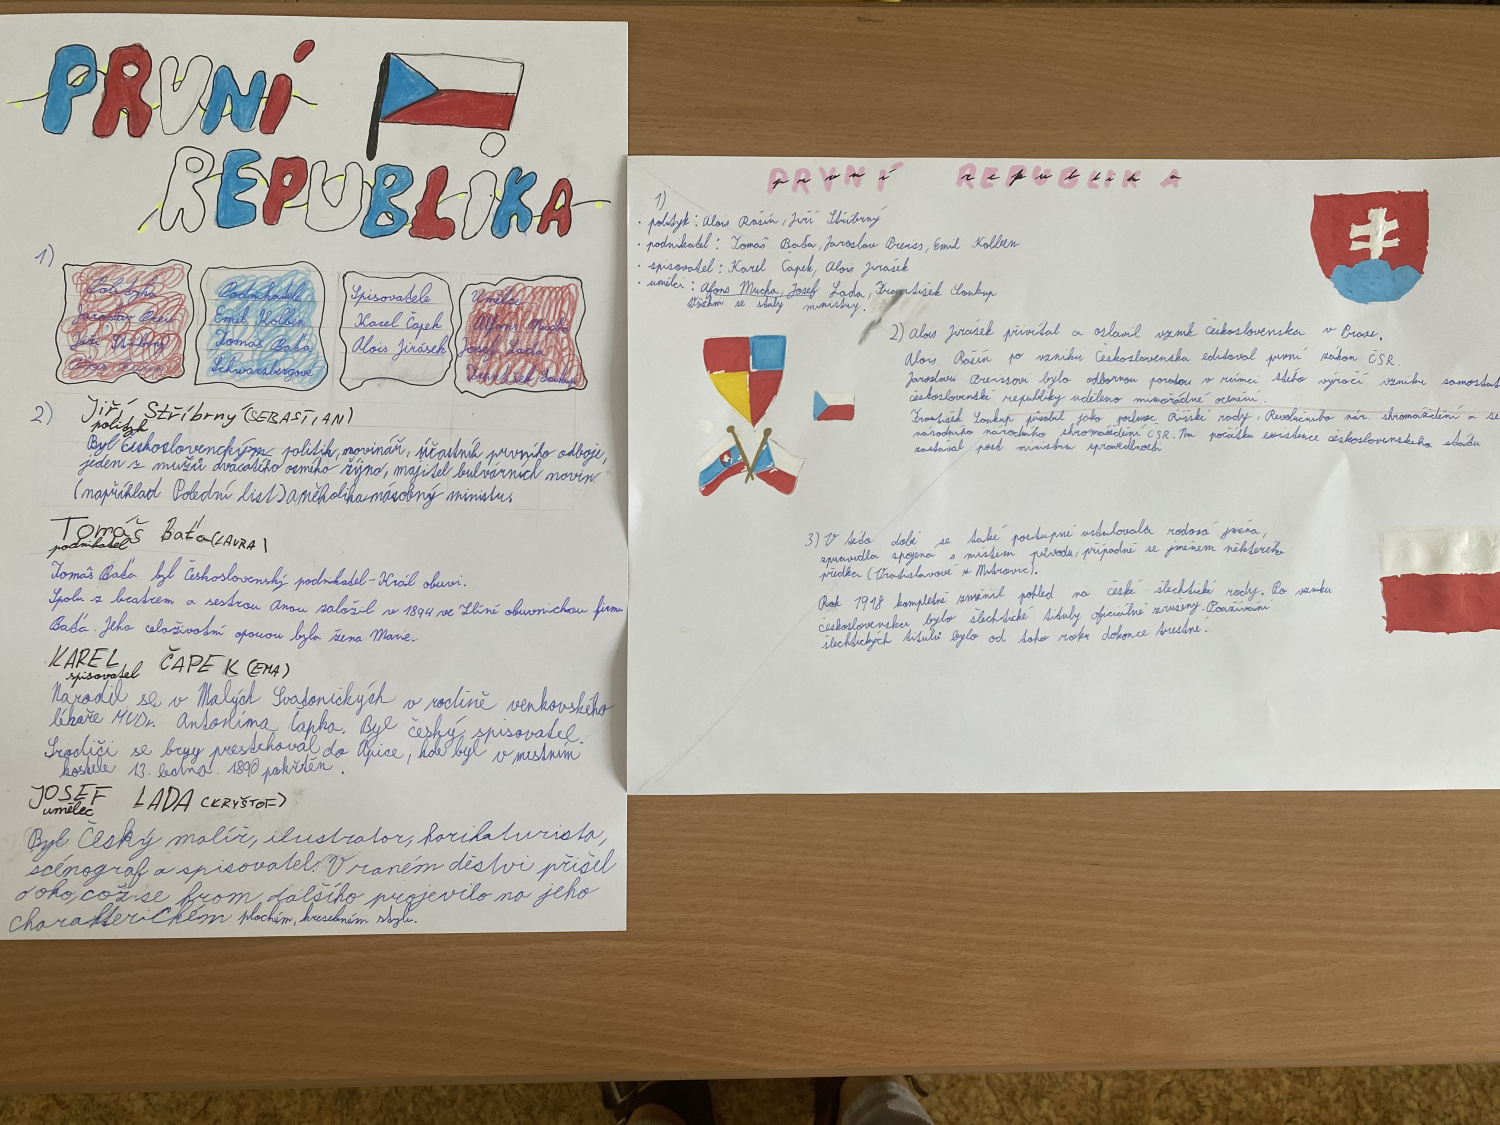 PRVNÍ
REPUBLIKA
1)
Politika
Jaroslav
Jiří Stříbrný
Alois
Podnikatelé
Emil Kolben
Tomáš Baťa
Schwarzbergové
Spisovatele
Karel Čapek
Alois Jirásek
Umělec
Alfons Mucha
Josef Lada
František Soukup
2) Jiří Stříbrný (SEBASTIAN)
polityk
Byl Československým politik, novinář, účastník prvního odboje,
jeden z mužů dvacátého osmého října, majitel bulvárních novin
(například Polední list) a několikamásobný ministr.
Tomáš Baťa (LAURA)
podnikatel
Tomáš Baťa byl Československý podnikatel - Král obuvi.
Spolu z bratrem a sestrou Anou založil v r 1894 ve Zlíně obuvnickou firmu
Baťa. Jeho celoživotní oporou byla žena Marie.
KAREL ČAPEK (EMA)
spisovatel
Narodil se v Malých Svatonických v rodině venkovského
lékaře MUDr. Antonína Čapka. Byl český spisovatel.
S rodiči se brzy přestěhoval do Úpice, kde byl v mestním
kostele 13. ledna. 1890 pokřtěn.
JOSEF LADA (KRYŠTOF)
umělec
Byl Český malíř, ilustrator, karikaturista,
scénograf a spisovatel. V raném dětství přišel
o oko, což se krom dalšího projevilo na jeho
charakterickém plochém, kresebném stylu.
PRVNÍ REPUBLIKA
první republika
1)
· polityk: Alois Rašín, Jiří Stříbrný
· podnikatel: Tomáš Baťa, Jaroslav Preiss, Emil Kolben
· spisovatel: Karel Čapek, Alois Jirásek
· umělci: Afons Mucha, Josef Lada, František Soukup
Všichni se staly ministry.
2) Alois Jirásek přivítal a oslavil vznik Československa v Praze.
Alois Rašín po vzniku Československa editoval první zákon ČSR.
Jaroslavu Preissovi bylo odbornou porotou v rámci stého výročí vzniku samostat
československé republiky uděleno mimořádné ocenění.
František Soukup působil jako poslanec Říšské rady, Revolučního nár. shromáždění a se
národního národního shromáždění ČSR. Na počátku existence československého státu
zastával post ministra spravedlnosti.
3) V této době se také postupně ustalovala rodová jména,
zpravidla spojená s místem původu, případně se jménem některého
předka (Vratislavové z Mitrovic).
Rok 1918 kompletně změnil pohled na české šlechtické rody. Po vzniku
Československa bylo šlechtické tituly oficiálně zrušeny. Používání
šlechtických titulů bylo od toho roku dokonce trestné.